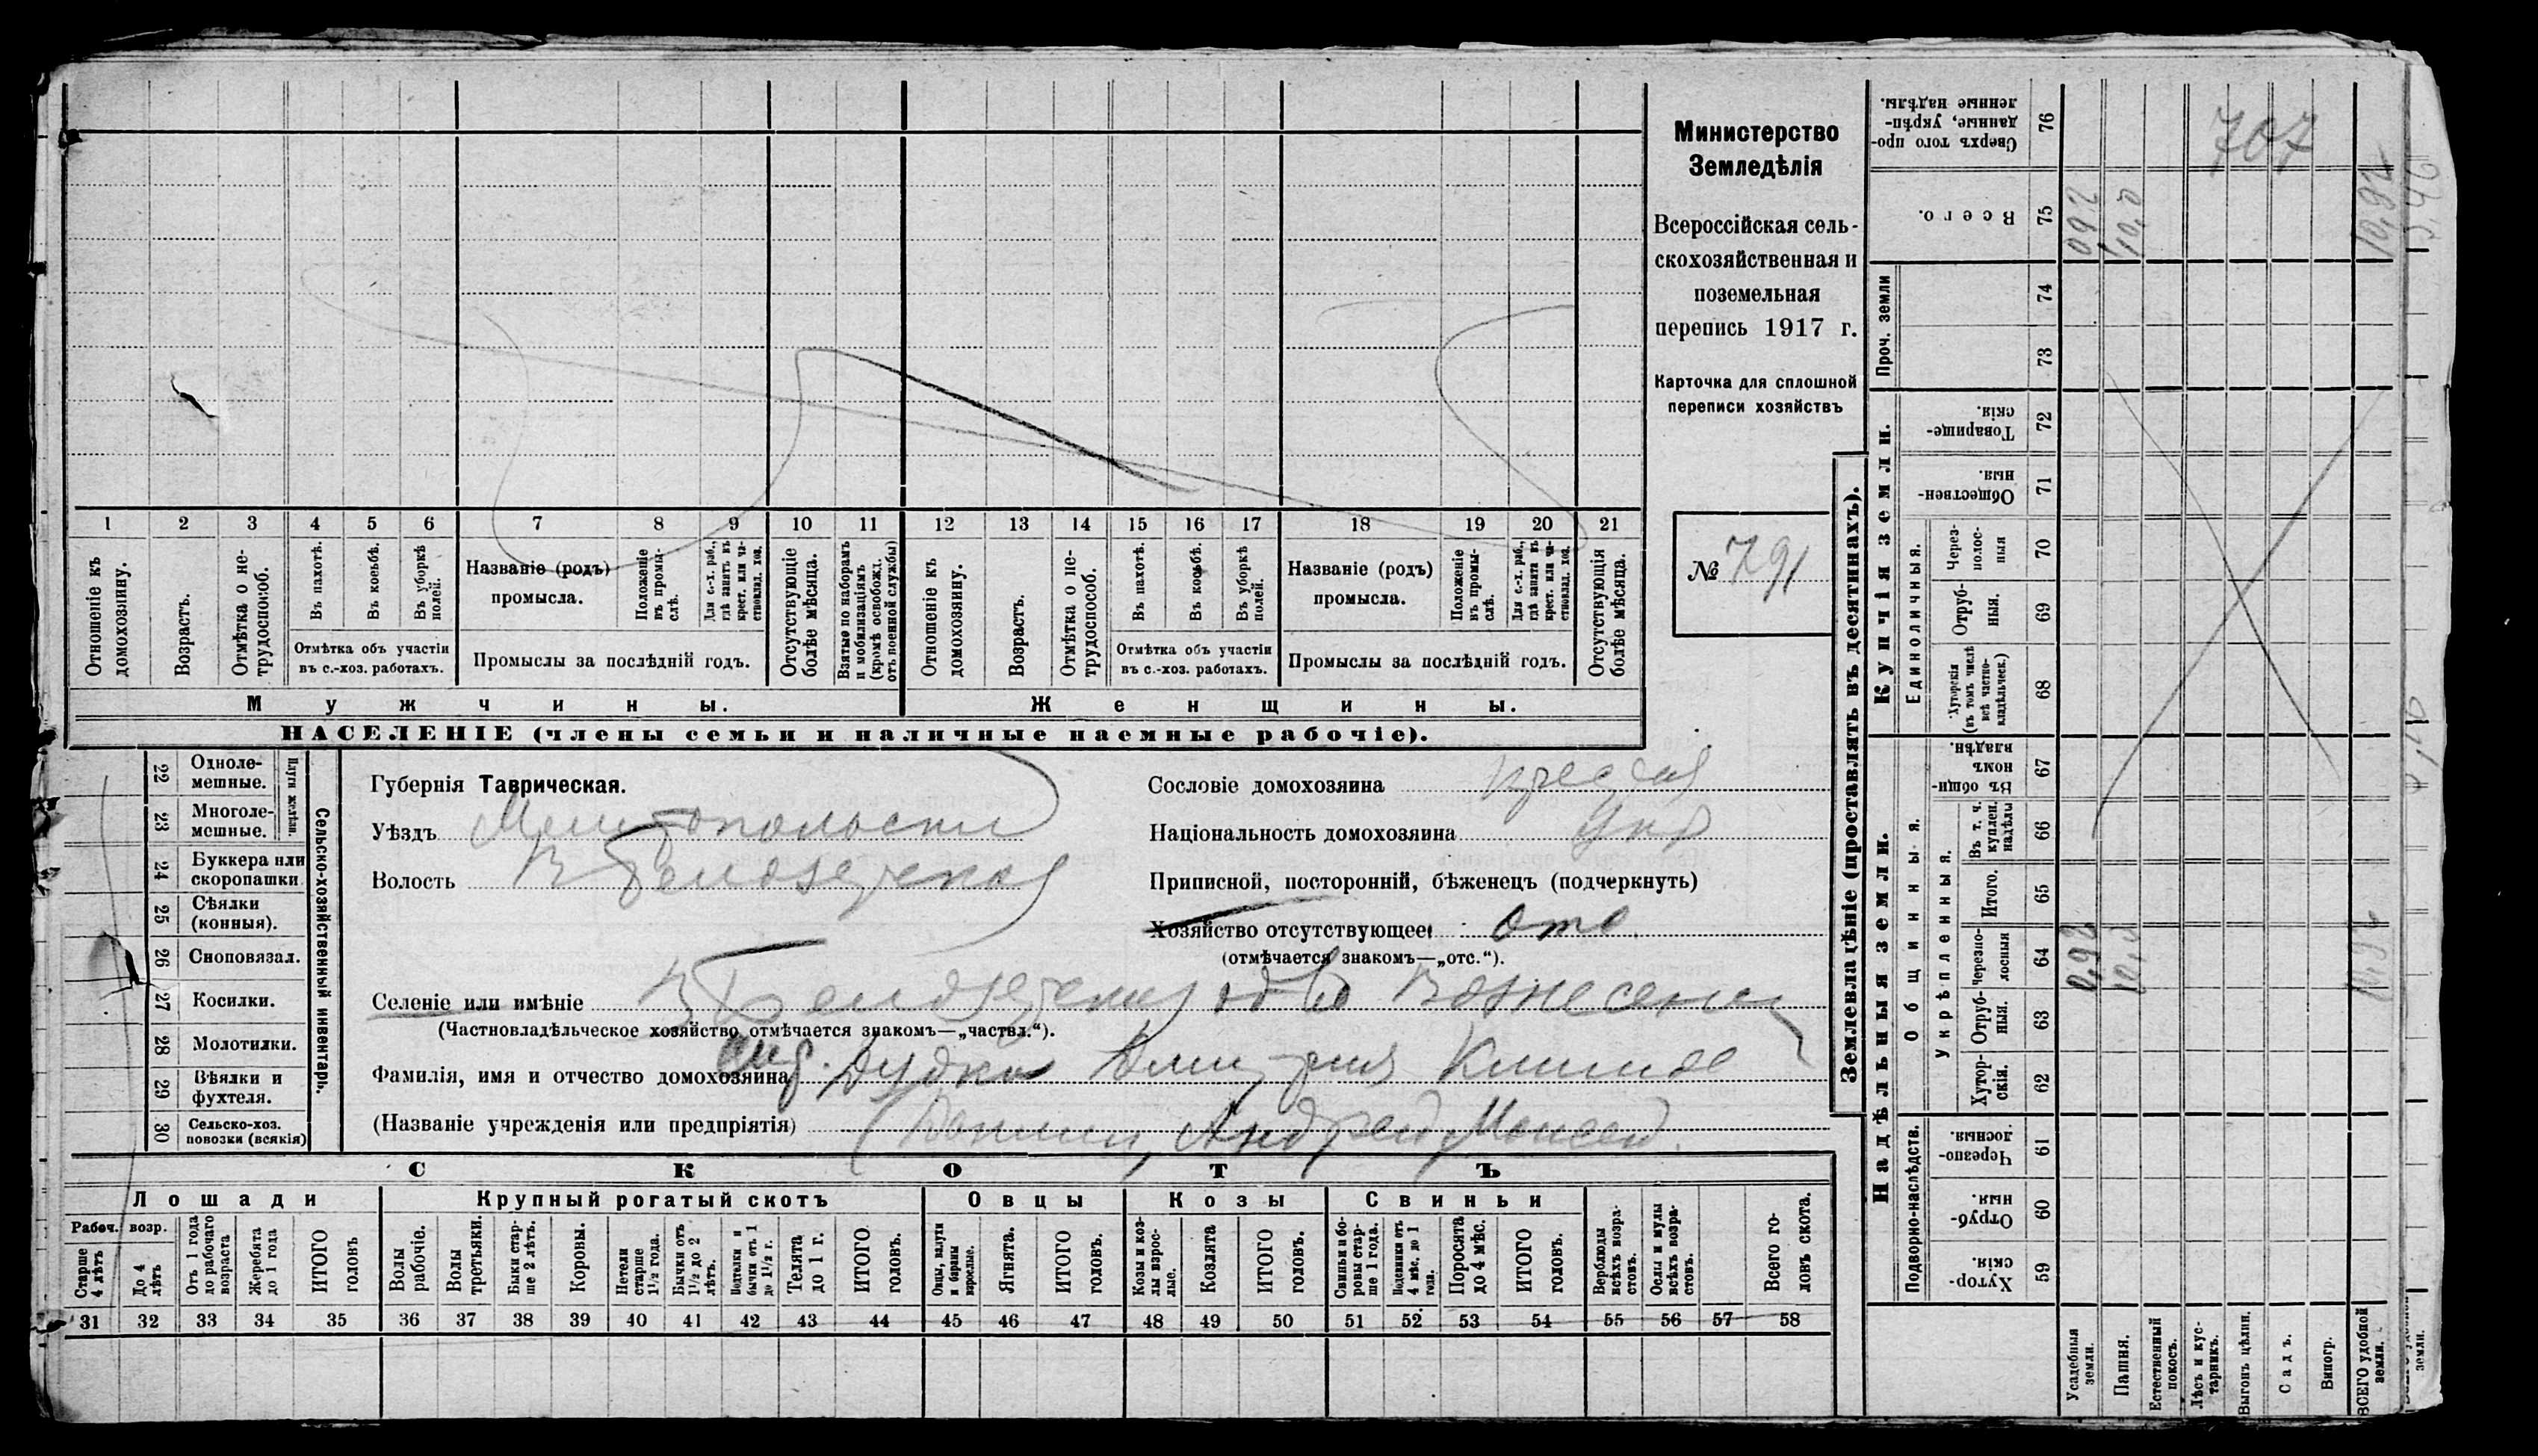 1 2 3 4 5 6 7 8 9 10 11 12 13 14 15 16 17 18 19 20 21
Отношеніе къ домохозяину.
Возрастъ.
Отмѣтка о не-
трудоспособ.
Въ пахотѣ.
Въ косьбѣ.
Въ уборкѣ
полей.
Отмѣтка объ участіи
въ с.-хоз. работахъ.
Названіе (родъ)
промысла.
Положеніе
въ промы-
слѣ.
Для с.-х. раб.,
гдѣ занятъ въ
крест. или ча-
стновлад. хоз.
Промыслы за послѣдній годъ.
Отсутствующіе
болѣе мѣсяца.
Взятые по наборамъ
и мобилизаціямъ
(кромѣ освобожд.
отъ военной службы)
Отношеніе къ
домохозяину.
Возрастъ.
Отмѣтка о не-
трудоспособ.
Въ пахотѣ.
Въ косьбѣ.
Въ уборкѣ
полей.
Отмѣтка объ участіи
въ с.-хоз. работахъ.
Названіе (родъ)
промысла.
Положеніе
въ промы-
слѣ.
Для с.-х. раб.,
гдѣ занята въ
крест. или ча-
стновлад. хоз.
Промыслы за послѣдній годъ.
Отсутствующія
болѣе мѣсяца.
Мужчины.
Женщины.
НАСЕЛЕНІЕ (члены семьи и наличные наемные рабочіе).
Министерство
Земледѣлія
Всероссійская сель-
скохозяйственная и
поземельная
перепись 1917 г.
Карточка для сплошной
переписи хозяйствъ
№ 791
22 Однoле-
мешные.
23 Многоле-
мешные.
Плуги желѣзн.
24 Буккера или
скоропашки
25 Сѣялки
(конныя).
26 Сноповязал.
27 Косилки.
28 Молотилки.
29 Вѣялки и
фухтеля.
30 Сельско-хоз.
повозки (всякія)
Сельско-хозяйственный инвентарь.
Губернія Таврическая.
Уѣздъ
Волость В Белозерская
Селеніе или имѣніе В Белозерка
(Частновладѣльческое хозяйство отмѣчается знакомъ—„частвл.“).
Фамилія, имя и отчество домохозяина Дудка Дмитрия
(Названіе учрежденія или предпріятія) Андрей Моисеев.
Сословіе домохозяина
Національность домохозяина Укр
Приписной, посторонній, бѣженецъ (подчеркнуть)
Хозяйство отсутствующее: отс.
(отмѣчается знакомъ—„отс.“).
СКОТЪ
Лошади
Крупный рогатый скотъ
Овцы
Козы
Свиньи
Рабоч. возр.
Старше
4 лѣтъ
До 4
лѣтъ
Отъ 1 года
до рабочаго
возраста
Жеребята
до 1 года
ИТОГО
головъ
Волы
рабочіе.
Волы
третьяки.
Быки стар-
ше 2 лѣтъ.
Коровы.
Нетели
старше
1½ года.
Бычки отъ
1½ до 2
лѣтъ.
Подтелки и
бычки отъ 1
до 1½ г.
Телята
до 1 г.
ИТОГО
головъ.
Овцы, валухи
и бараны
взрослые.
Ягнята.
ИТОГО
головъ.
Козы и коз-
лы взрос-
лые.
Козлята
ИТОГО
головъ.
Свиньи и бо-
ровы стар-
ше 1 года.
Подсвинки отъ
4 мѣс. до 1
года.
Поросята
до 4 мѣс.
ИТОГО
головъ.
Верблюды
всѣхъ возра-
стовъ.
Ослы и мулы
всѣхъ возра-
стовъ.
Всего го-
ловъ скота.
31 32 33 34 35 36 37 38 39 40 41 42 43 44 45 46 47 48 49 50 51 52 53 54 55 56 57 58
Землевладѣніе (проставлять въ десятинахъ).
Надѣльныя земли.
Купчія земли.
Проч. земли
Подворно-наслѣдств.
Общинныя.
Укрѣпленныя.
Единоличныя.
Сверхъ того про-
данные, укрѣп-
ленные надѣлы. 76
Всего. 75
74
73
Товарище-
скія. 72
Обществен-
ныя. 71
Через-
полос-
ныя 70
Отруб-
ныя. 69
Хуторскія
(въ томъ числѣ
всѣ частно-
владѣльческ.) 68
Въ общин-
номъ
владѣн. 67
Въ т. ч.
куплен.
надѣлы 66
Итого. 65
Черезпо-
лосныя 64
Отруб-
ныя. 63
Хутор-
скія. 62
Черезпо-
лосныя. 61
Отруб-
ныя. 60
Хутор-
скія. 59
Усадебныя
земли.
Пашня.
Естественный
покосъ.
Лѣсъ и кус-
тарникъ.
Выгонъ цѣлин.
Садъ.
Виногр.
ВСЕГО удобной
земли.
земли.
707
092
10,0
10,92
0,92
10,0
10,92